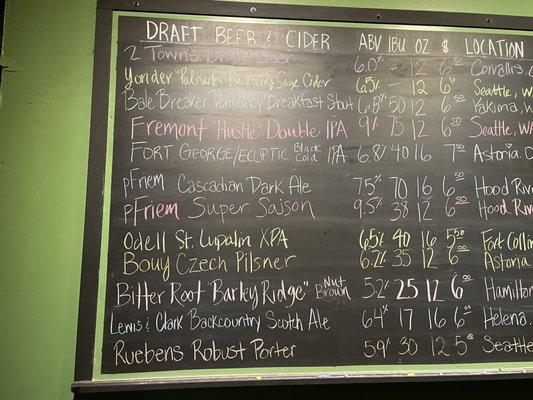 DRAFT BEER & CIDER ABV IBU OZ $ LOCATION
2 Towns Bright Cider 6.0% - 12 6 Corvallis,
Yonder "Palisades" Blackberry Sage Cider 6.5% 12 6 Seattle, WA
Bale Breaker Dormancy Breakfast Stout 6.8% 50 12 6 Yakima, W
Fremont "Hustle" Double IPA 9% 75 12 6.50 Seattle, WA
FORT GEORGE/ECLIPTIC Black Cold IPA 6.8% 40 16 7.00 Astoria. O
pFriem Cascadian Dark Ale 7.5% 70 16 6.50 Hood River
pFriem Super Saison 9.5% 38 12 6.50 Hood River
Odell St. Lupulin XPA 6.5% 40 16 5.50 Fort Collin
Bouy Czech Pilsner 6.2% 35 12 6.00 Astoria
Bitter Root "Barley Ridge" Nut Brown 5.2% 25 12 6.00 Hamilton
Lewis & Clark Backcountry Scotch Ale 6.4% 17 16 6.00 Helena.
Ruebens Robust Porter 5.9% 30 12 5 Seattle